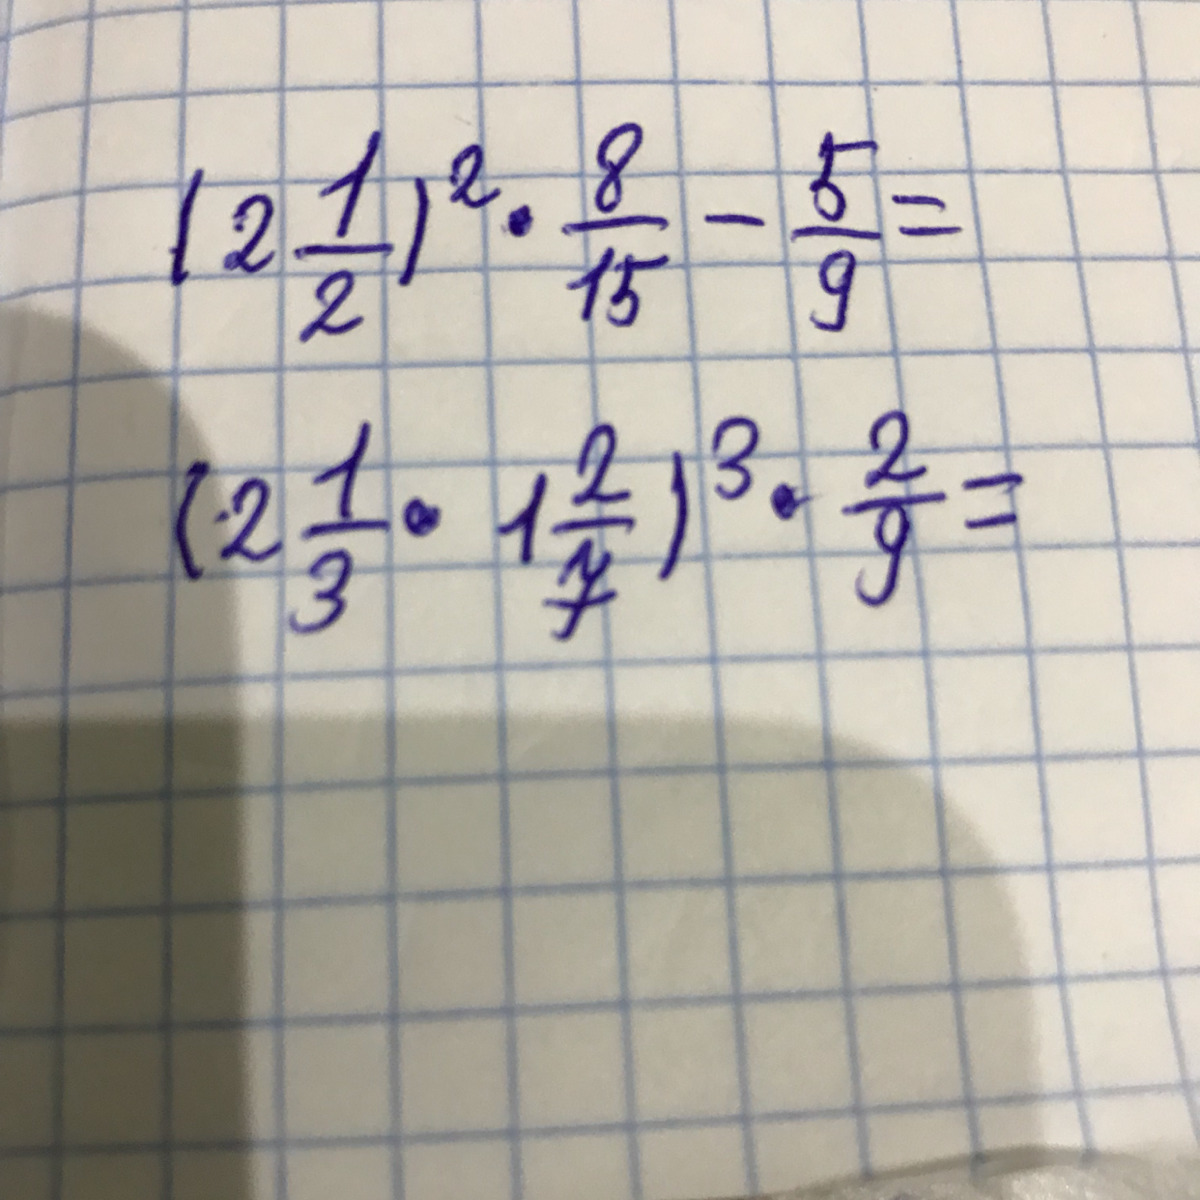 (2 1/2)² · 8/15 − 5/9 =
(2 1/3 · 1 2/7)³ · 2/9 =